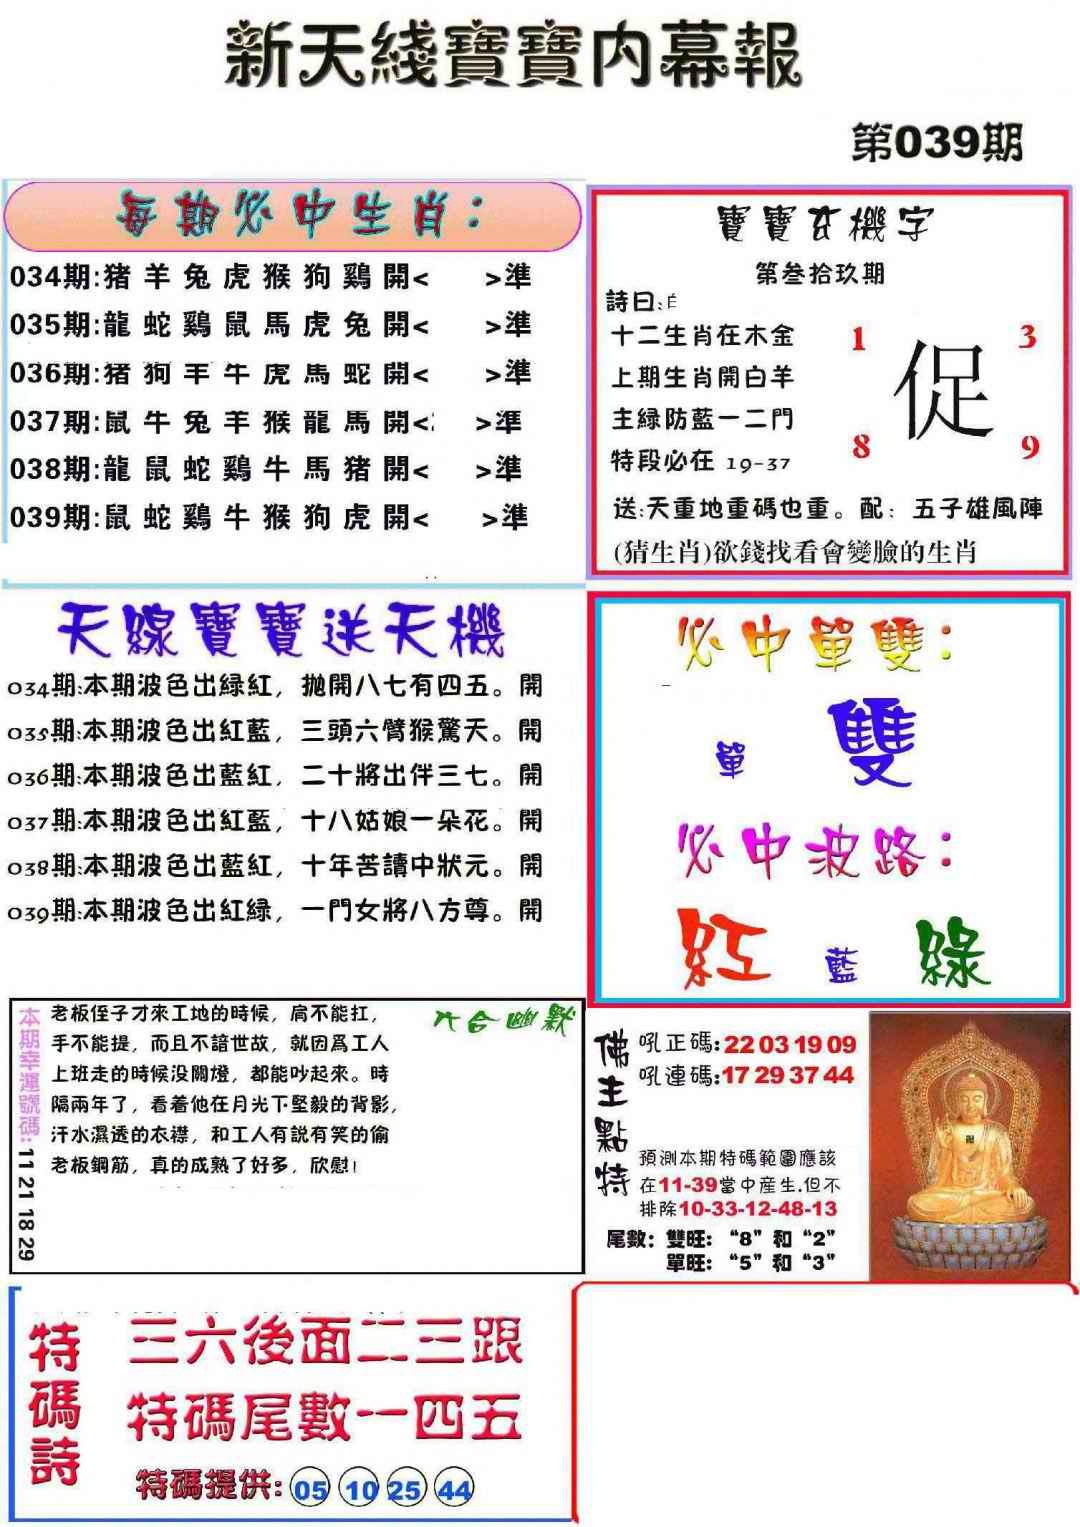 新天綫寶寶内幕報
第039期
每期必中生肖：
034期:猪羊兔虎猴狗鷄開< >準
035期:龍蛇鷄鼠馬虎兔開< >準
036期:猪狗羊牛虎馬蛇開< >準
037期:鼠牛兔羊猴龍馬開< >準
038期:龍鼠蛇鷄牛馬猪開< >準
039期:鼠蛇鷄牛猴狗虎開< >準
寶寶玄機字
第叁拾玖期
詩曰:
十二生肖在木金
上期生肖開白羊
主緑防藍一二門
特段必在 19-37
1 3
促
8 9
送:天重地重碼也重。配：五子雄風陣
(猜生肖)欲錢找看會變臉的生肖
天線寶寶送天機
034期:本期波色出緑紅，抛開八七有四五。開
035期:本期波色出紅藍，三頭六臂猴驚天。開
036期:本期波色出藍紅，二十將出伴三七。開
037期:本期波色出紅藍，十八姑娘一朵花。開
038期:本期波色出藍紅，十年苦讀中狀元。開
039期:本期波色出紅緑，一門女將八方尊。開
必中單雙：
單 雙
必中波路：
紅 藍 綠
本期幸運號碼:11 21 18 29
六合幽默
老板侄子才來工地的時候，肩不能扛，
手不能提，而且不諳世故，就因爲工人
上班走的時候没關燈，都能吵起來。時
隔兩年了，看着他在月光下堅毅的背影，
汗水濕透的衣襟，和工人有説有笑的偷
老板鋼筋，真的成熟了好多，欣慰！
佛主點特
吼正碼:22 03 19 09
吼連碼:17 29 37 44
預測本期特碼範圍應該
在11-39當中産生.但不
排除10-33-12-48-13
尾數：雙旺：“8”和“2”
單旺：“5”和“3”
特碼詩
三六後面二三跟
特碼尾數一四五
特碼提供: 05 10 25 44